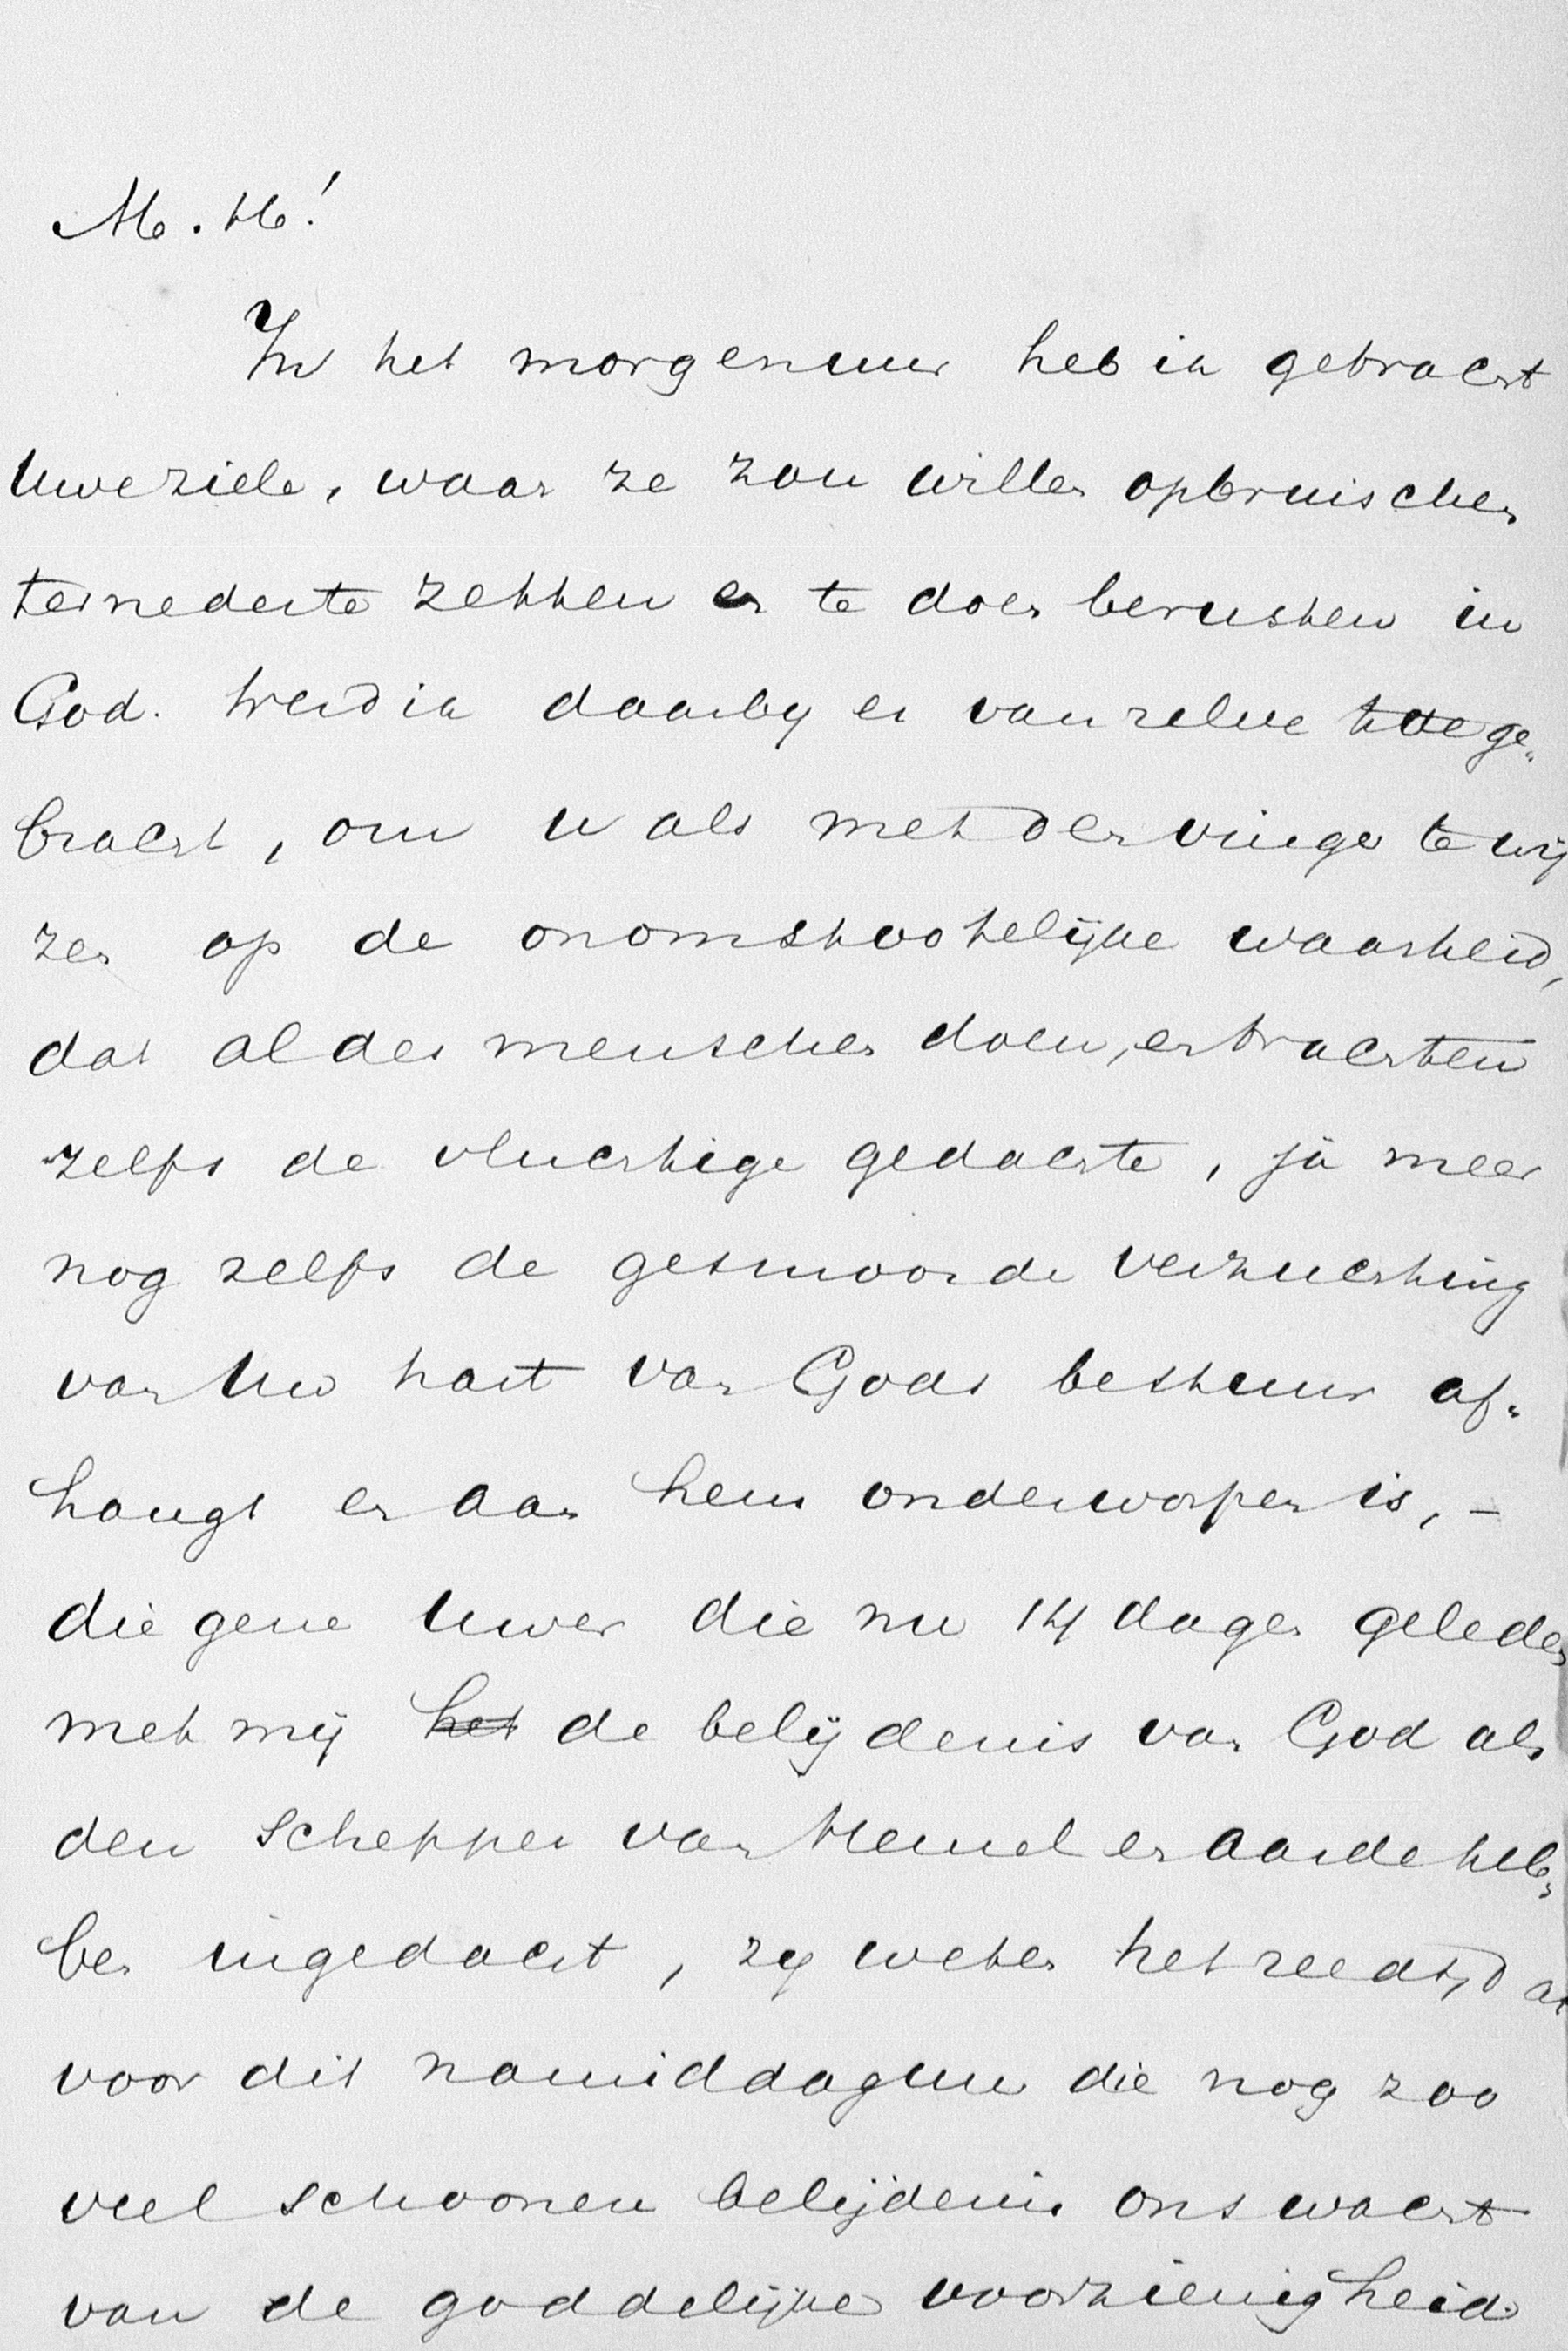 M. H!
In het morgenuur heb ik getracht
Uwe ziele, waar ze zou willen opbruischen
ternederte zetten en te doen berusten in
God. Werd ik daarby er van zelve toe ge-
bracht, om u als met den vinger te wij
zen op de onomstootelijke waarheid,
dat al des menschen doen, en trachten
zelfs de vluchtige gedachte, ja meer
nog zelfs de gesmoorde verzuchting
van Uw hart van Gods bestuur af-
hangt en aan hem onderworpen is, -
die gene Uwer die nu 14 dagen geleden
met mij het de belijdenis van God als
den Schepper van Hemel en aarde heb-
ben ingedacht, zy weten het reeds, dat
voor dit namiddaguur die nog zoo
veel schoonere belijdenis ons wacht
van de goddelijke voorzienigheid.